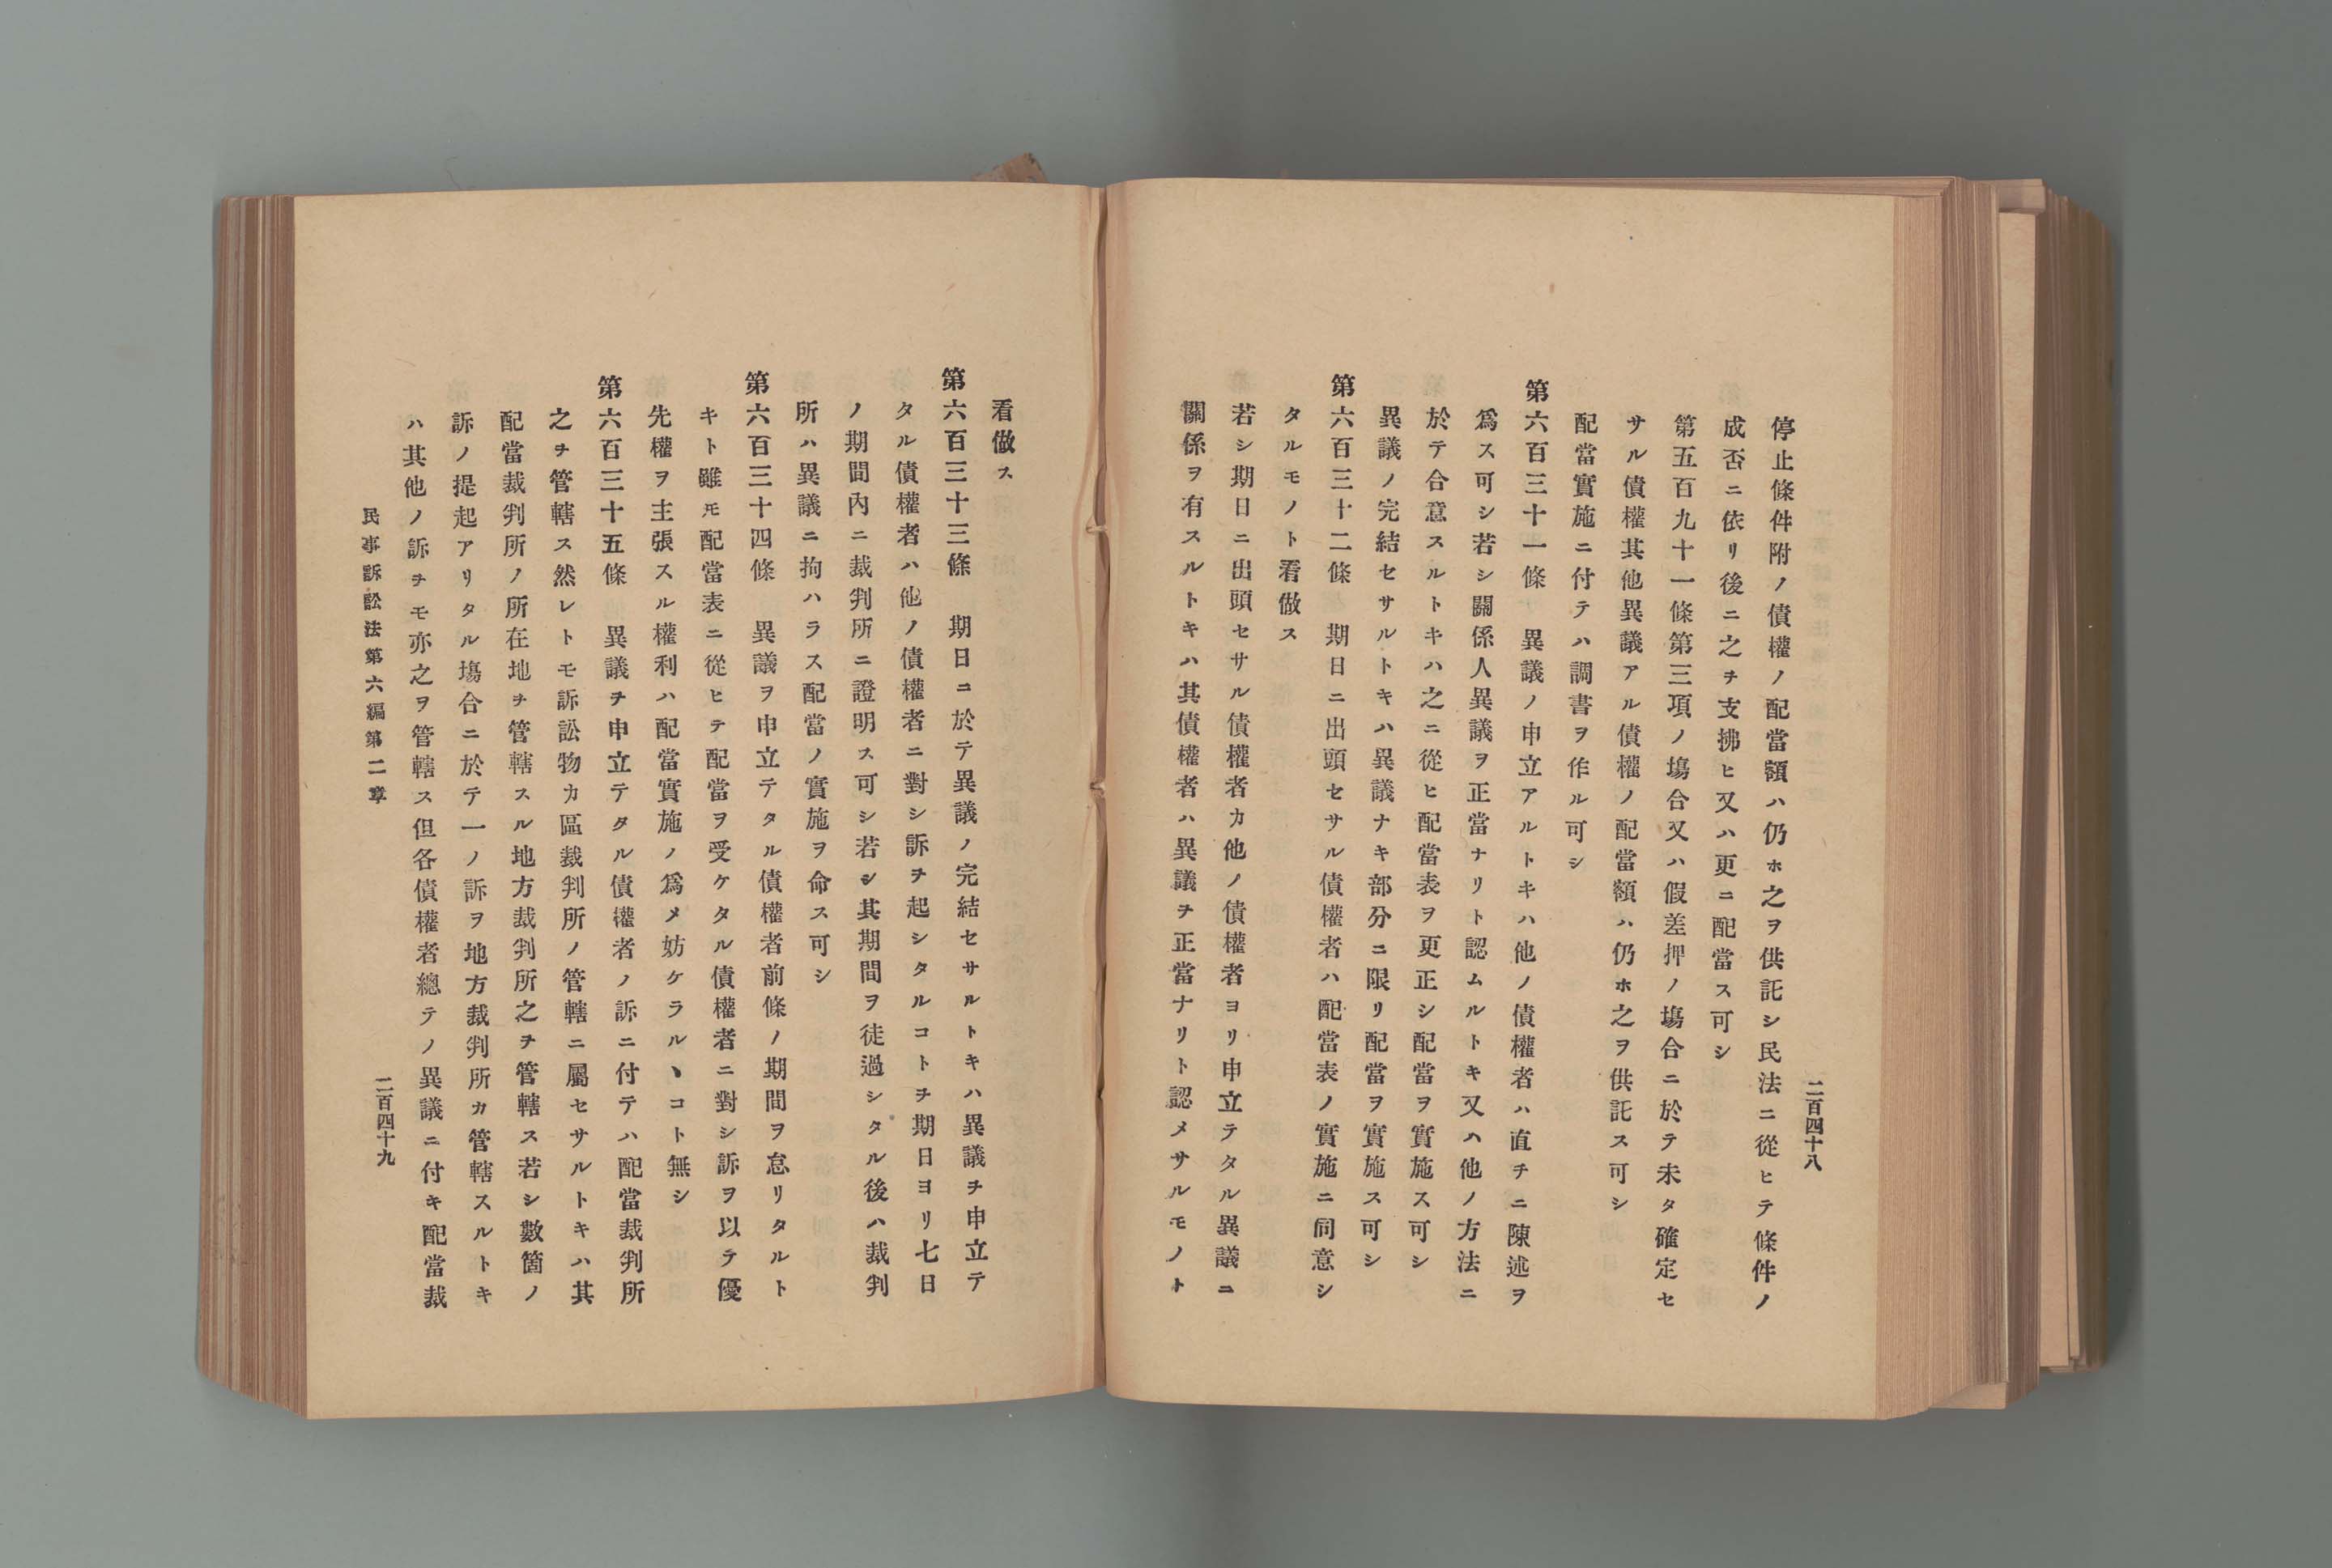 二百四十八
停止條件附ノ債權ノ配當額ハ仍ホ之ヲ供託シ民法ニ從ヒテ條件ノ
成否ニ依リ後ニ之チ支拂ヒ又ハ更ニ配當ス可シ
第五百九十一條第三項ノ塲合又ハ假差押ノ塲合ニ於テ未タ確定セ
サル債權其他異議アル債權ノ配當額ハ仍ホ之ヲ供託ス可シ
配當實施ニ付テハ調書ヲ作ル可シ
第六百三十一條 異議ノ申立アルトキハ他ノ債權者ハ直チニ陳述ヲ
爲ス可シ若シ關係人異議ヲ正當ナリト認ムルトキ又ハ他ノ方法ニ
於テ合意スルトキハ之ニ從ヒ配當表ヲ更正シ配當ヲ實施ス可シ
異議ノ完結セサルトキハ異議ナキ部分ニ限リ配當ヲ實施ス可シ
第六百三十二條 期日ニ出頭セサル債權者ハ配當表ノ實施ニ同意シ
タルモノト看做ス
若シ期日ニ出頭セサル債權者カ他ノ債權者ヨリ申立テタル異議ニ
關係ヲ有スルトキハ其債權者ハ異議チ正當ナリト認メサルモノト
看做ス
第六百三十三條 期日ニ於テ異議ノ完結セサルトキハ異議チ申立テ
タル債權者ハ他ノ債權者ニ對シ訴チ起シタルコトチ期日ヨリ七日
ノ期間內ニ裁判所ニ證明ス可シ若シ其期間ヲ徒過シタル後ハ裁判
所ハ異議ニ拘ハラス配當ノ實施ヲ命ス可シ
第六百三十四條 異議ヲ申立テタル債權者前條ノ期間ヲ怠リタルト
キト雖モ配當表ニ從ヒテ配當ヲ受ケタル債權者ニ對シ訴ヲ以テ優
先權ヲ主張スル權利ハ配當實施ノ爲メ妨ケラルヽコト無シ
第六百三十五條 異議チ申立テタル債權者ノ訴ニ付テハ配當裁判所
之チ管轄ス然レトモ訴訟物カ區裁判所ノ管轄ニ屬セサルトキハ其
配當裁判所ノ所在地チ管轄スル地方裁判所之チ管轄ス若シ數箇ノ
訴ノ提起アリタル塲合ニ於テ一ノ訴ヲ地方裁判所カ管轄スルトキ
ハ其他ノ訴チモ亦之ヲ管轄ス但各債權者總テノ異議ニ付キ配當裁
民事訴訟法第六編第二章
二百四十九